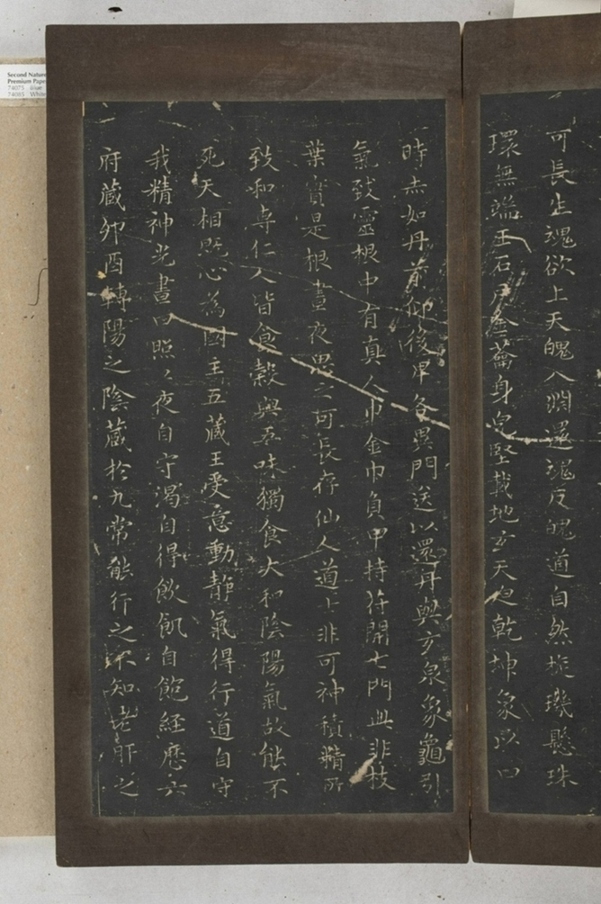 可長生魂欲上天魄入淵還魂反魄道自然旋璣懸珠
環無端玉石戶金蘥身完堅載地玄天迫乾坤象以四
時赤如丹前仰後卑各異門送以還丹與玄泉象龜引
氣致靈根中有真人巾金巾負甲持符開七門此非枝
葉實是根晝夜思之可長存仙人道士非可神積精所
致和專仁人皆食穀與五味獨食大和陰陽氣故能不
死天相既心為國主五藏王受意動靜氣得行道自守
我精神光晝日照照夜自守渴自得飲飢自飽經歷六
府藏卯酉轉陽之陰藏於九常能行之不知老肝之
Second Nature
Premium Pape
74075 Blue
74085 White